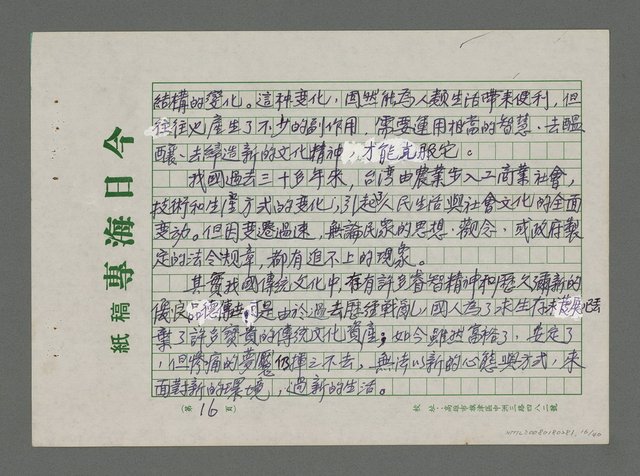 結構的變化。這种变化，固然能為人類生活帶來便利，但
往往也產生了不少的副作用，需要運用相當的智慧、去醞
釀、去締造新的文化精神，才能克服它。
我國過去三十多年來，台湾由農業步入工商業社會，
技術和生產方式的変化，引起人民生活與社會文化的全面
变动。但因变遷過速，無論民眾的思想、觀念、或政府製
定的法令規章，都有追不上的現象。
其實我國傳統文化中，存有許多睿智精神和歷久彌新的
優良品德傳世，可是由於過去歷經戰亂，國人為了求生存
棄了許多寶貴的傳統文化資產；如今雖然富裕了，安定了
，但慘痛的夢魘仍揮之不去，無法以新的心態與方式，來
面對新的環境，過新的生活。
今日海專
稿紙
（第 16 頁）
校 址：高雄市旗津區中洲三路四八二號
16/40